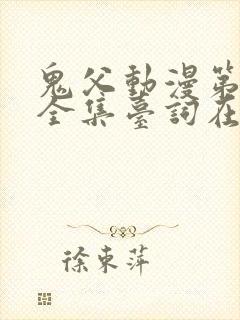 鬼父動漫第
全集臺詞在
徐東萍